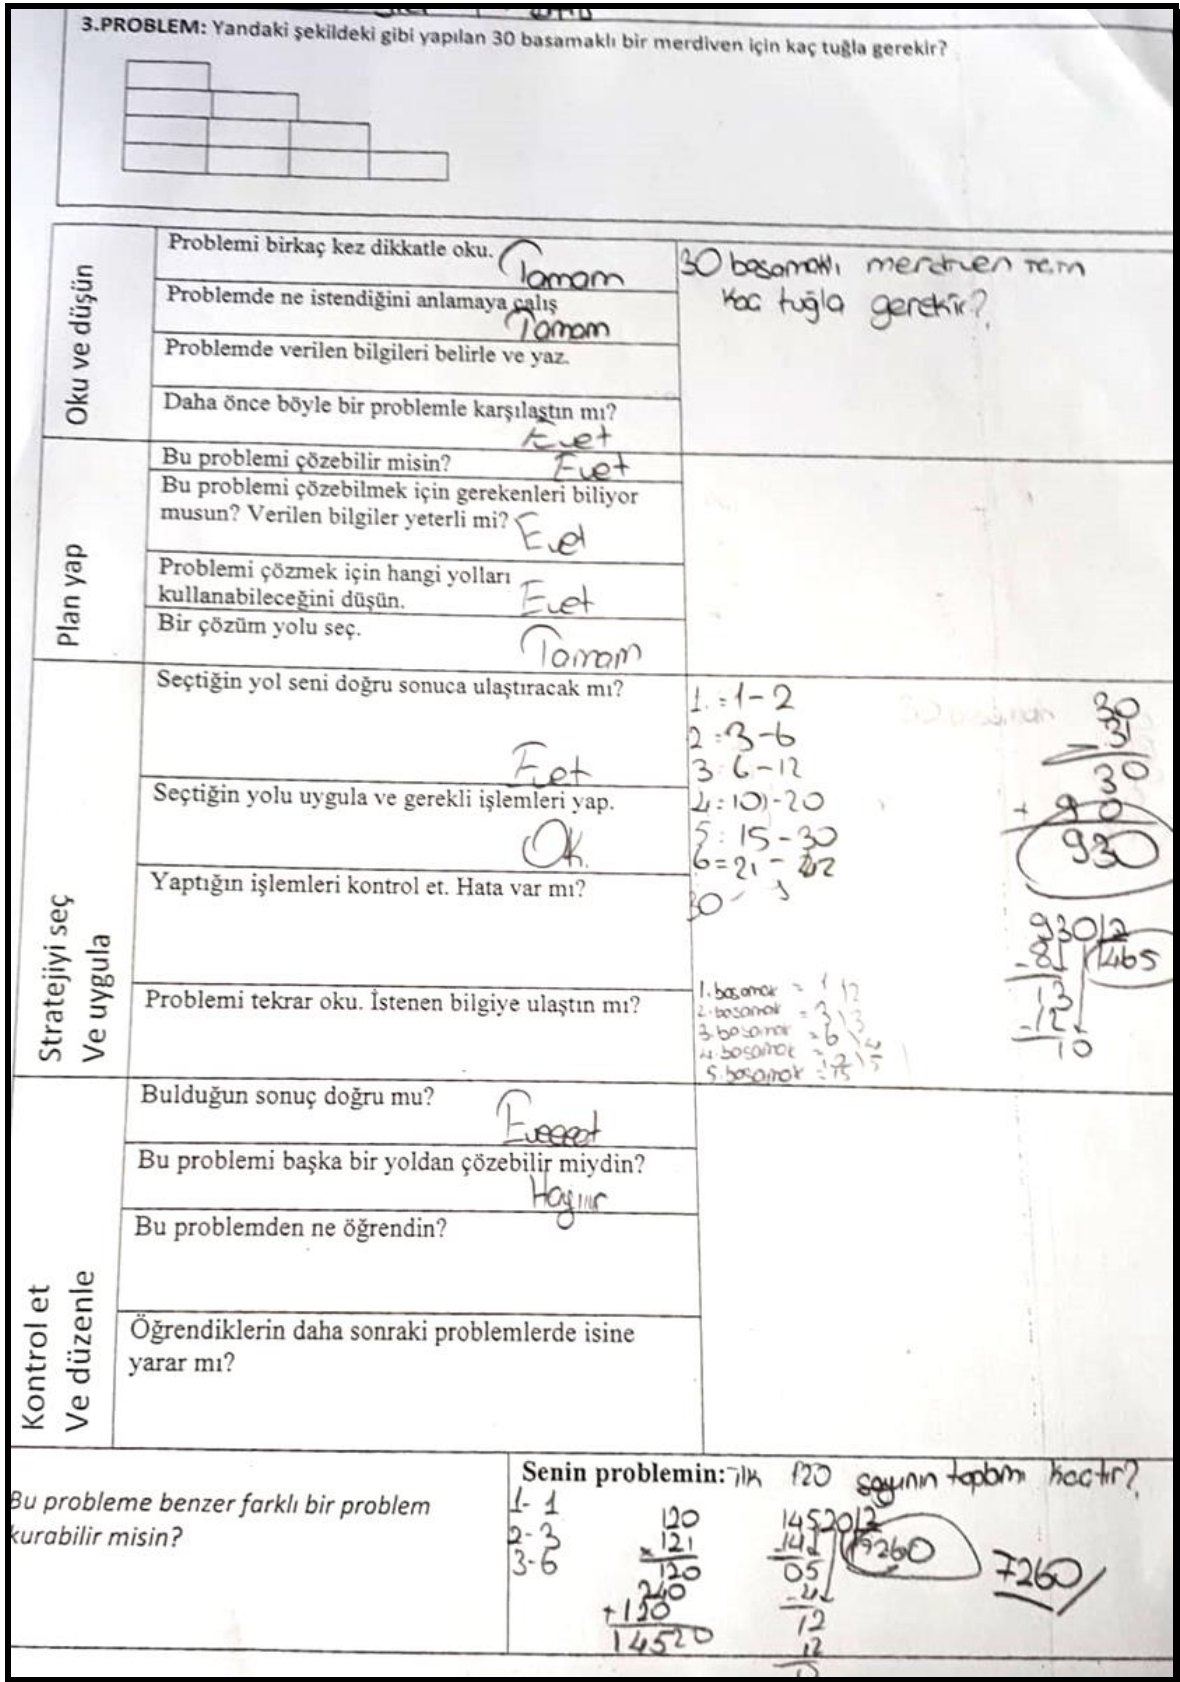 3.PROBLEM: Yandaki şekildeki gibi yapılan 30 basamaklı bir merdiven için kaç tuğla gerekir?
Oku ve düşün
Problemi birkaç kez dikkatle oku.
Tamam
Problemde ne istendiğini anlamaya çalış
Tamam
Problemde verilen bilgileri belirle ve yaz.
Daha önce böyle bir problemle karşılaştın mı?
Evet
30 basamaklı merdiven için
kaç tuğla gerekir?
Plan yap
Bu problemi çözebilir misin?
Evet
Bu problemi çözebilmek için gerekenleri biliyor
musun? Verilen bilgiler yeterli mi?
Evet
Problemi çözmek için hangi yolları
kullanabileceğini düşün.
Evet
Bir çözüm yolu seç.
Tamam
Stratejiyi seç
Ve uygula
Seçtiğin yol seni doğru sonuca ulaştıracak mı?
Evet
Seçtiğin yolu uygula ve gerekli işlemleri yap.
Ok.
Yaptığın işlemleri kontrol et. Hata var mı?
Problemi tekrar oku. İstenen bilgiye ulaştın mı?
1.=1-2
2=3-6
3:6-12
4:10-20
5:15-30
6=21-42
30-
30
31
30
+ 90
930
930 2
-8 465
13
-12
10
1.basamak = 1 2
2.basamak = 3 3
3.basamak = 6 4
4.basamak = 5
5.basamak = 15
Kontrol et
Ve düzenle
Bulduğun sonuç doğru mu?
Eveeeet
Bu problemi başka bir yoldan çözebilir miydin?
Hayır
Bu problemden ne öğrendin?
Öğrendiklerin daha sonraki problemlerde isine
yarar mı?
Bu probleme benzer farklı bir problem
kurabilir misin?
Senin problemin: ilk 120 sayının toplamı kaçtır?
1- 1
2- 3
3-6
120
x 121
120
240
+120
14520
14520 2
-14 7260
05
-4
12
12
0
7260